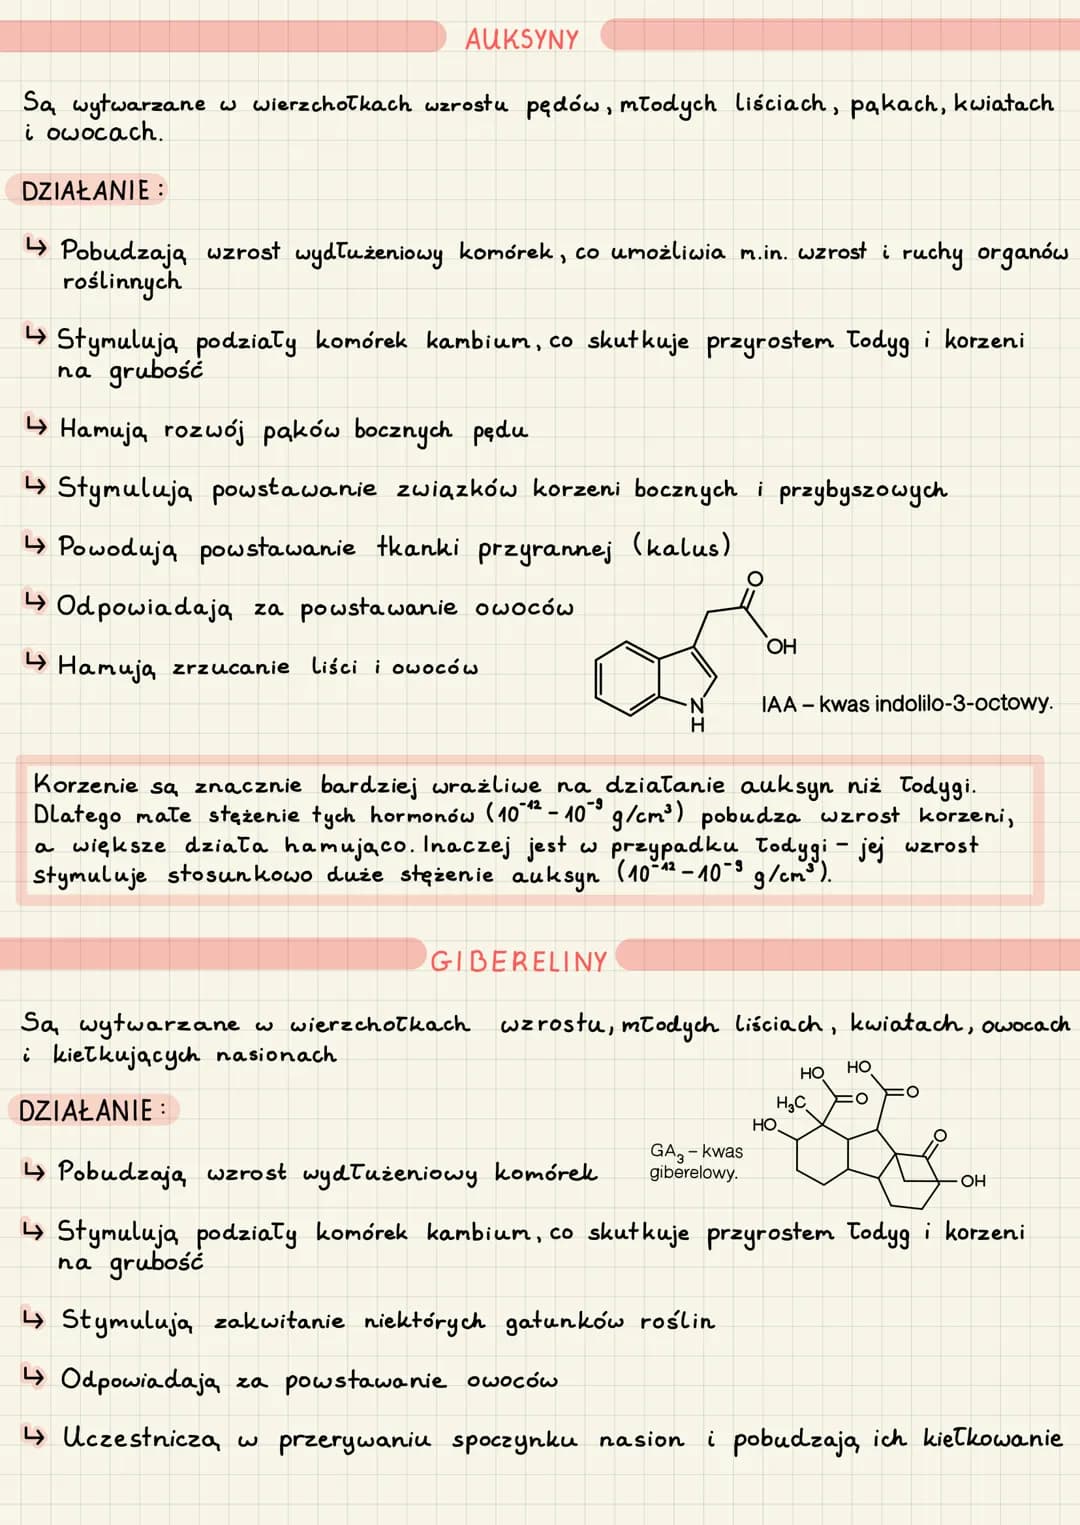 AUKSYNY
Są wytwarzane w wierzchołkach wzrostu pędów, młodych liściach, pąkach, kwiatach
i owocach.
DZIAŁANIE:
↳ Pobudzają wzrost wydłużeniowy komórek, co umożliwia m.in. wzrost i ruchy organów
roślinnych
↳ Stymulują podziały komórek kambium, co skutkuje przyrostem łodyg i korzeni
na grubość
↳ Hamują rozwój pąków bocznych pędu
↳ Stymulują powstawanie związków korzeni bocznych i przybyszowych
↳ Powodują powstawanie tkanki przyrannej (kalus)
↳ Odpowiadają za powstawanie owoców
↳ Hamują zrzucanie liści i owoców
O
OH
N
H
IAA – kwas indolilo-3-octowy.
Korzenie są znacznie bardziej wrażliwe na działanie auksyn niż łodygi.
Dlatego małe stężenie tych hormonów (10⁻¹² – 10⁻⁹ g/cm³) pobudza wzrost korzeni,
a większe działa hamująco. Inaczej jest w przypadku łodygi – jej wzrost
stymuluje stosunkowo duże stężenie auksyn (10⁻¹² – 10⁻⁹ g/cm³).
GIBERELINY
Są wytwarzane w wierzchołkach wzrostu, młodych liściach, kwiatach, owocach
i kiełkujących nasionach
DZIAŁANIE:
HO HO
H₃C O O
HO O
OH
GA₃ – kwas
giberelowy.
↳ Pobudzają wzrost wydłużeniowy komórek
↳ Stymulują podziały komórek kambium, co skutkuje przyrostem łodyg i korzeni
na grubość
↳ Stymulują zakwitanie niektórych gatunków roślin
↳ Odpowiadają za powstawanie owoców
↳ Uczestniczą w przerywaniu spoczynku nasion i pobudzają ich kiełkowanie